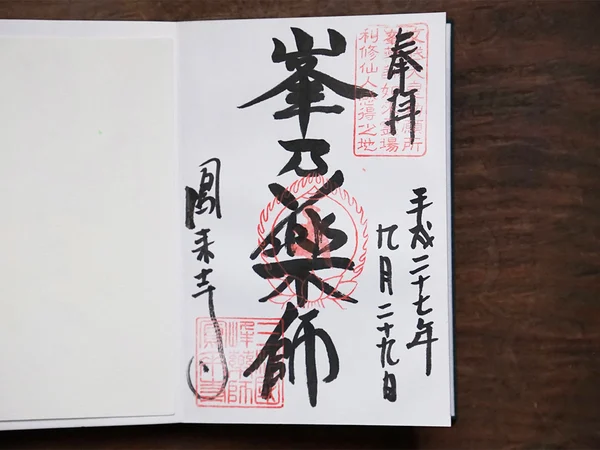 奉拝
利修仙人感得之地
平成二十七年
九月二十九日
峯乃薬師
鳳来寺